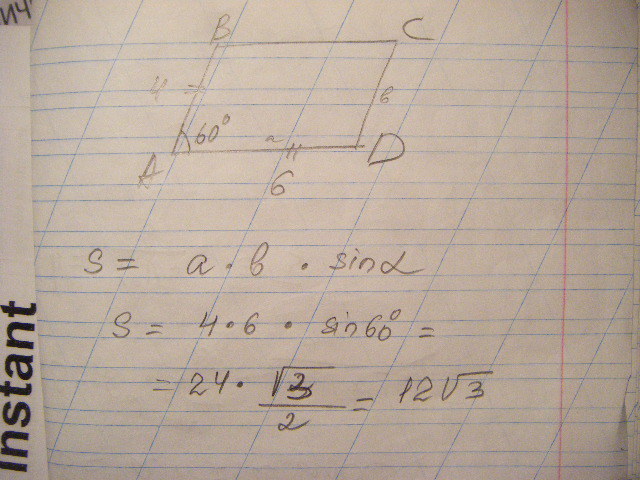 B C
4 в
60° a
A D
6
S = a · b · sinα
S = 4 · 6 · sin60° =
= 24 · √3/2 = 12√3
Instant